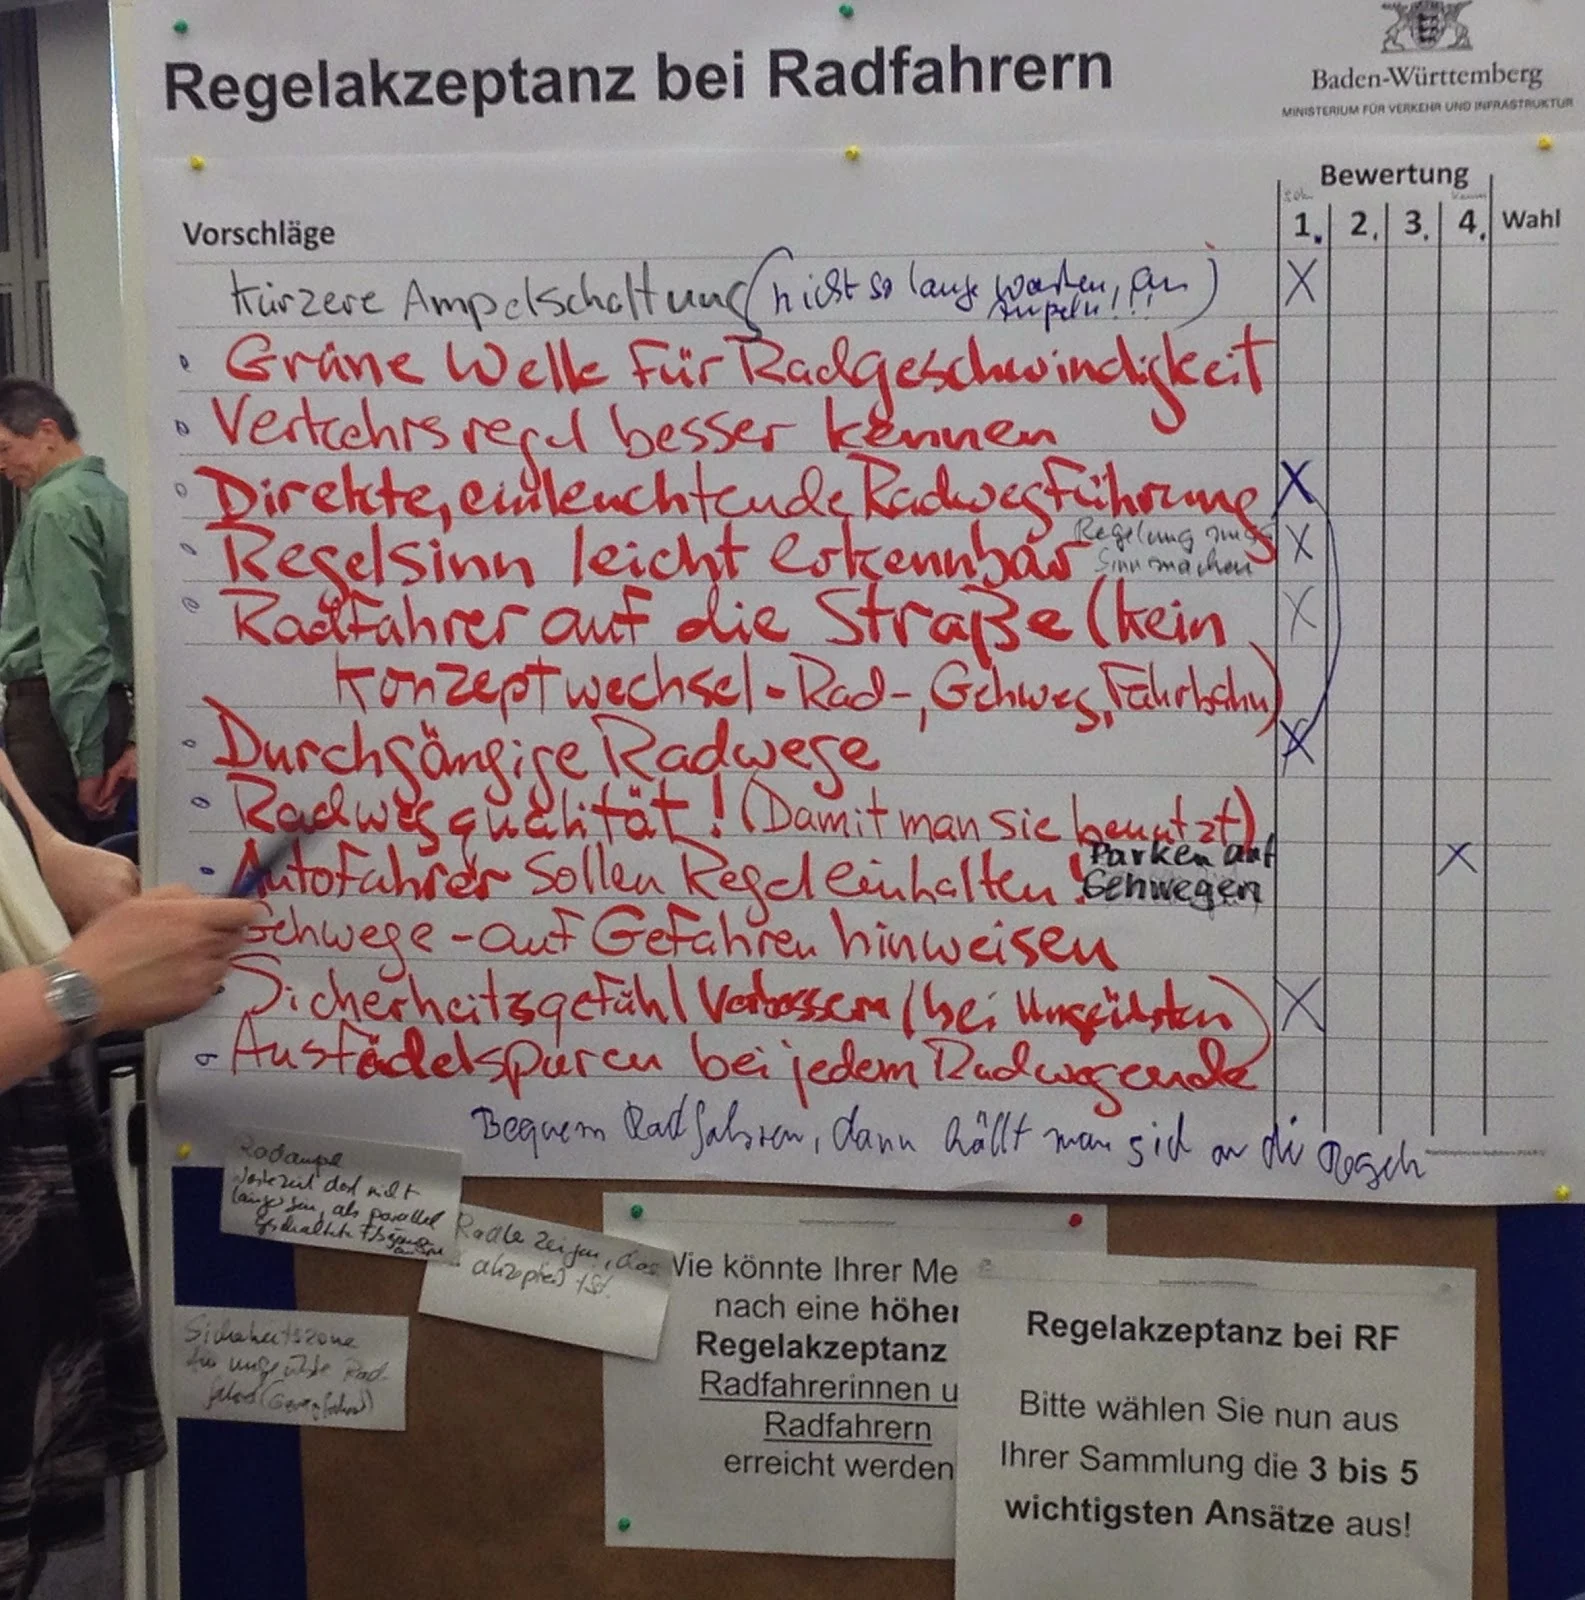 Regelakzeptanz bei Radfahrern
Baden-Württemberg
MINISTERIUM FÜR VERKEHR UND INFRASTRUKTUR
Bewertung
Vorschläge
1. 2. 3. 4. Wahl
Kürzere Ampelschaltung (nicht so lange warten, an Ampeln!!!) X
Grüne Welle für Radgeschwindigkeit
Verkehrsregel besser kennen
Direkte, einleuchtende Radwegführung X
Regelsinn leicht erkennbar Regelung muss Sinn machen X
Radfahrer auf die Straße (kein X
Konzeptwechsel - Rad-, Gehweg, Fahrbahn)
Durchgängige Radwege X
Radwegqualität! (Damit man sie benutzt)
Autofahrer sollen Regel einhalten! Parken auf Gehwegen X
Gehwege - auf Gefahren hinweisen
Sicherheitsgefühl verbessern (bei Ungeübten) X
Ausfädelspuren bei jedem Radwegende
Bequem Radfahren, dann hällt man sich an die Regeln
Radampel
Wartezeit darf nicht
länger sein, als parallel
geschaltete
Radle zeigen, das
akzeptiert ist.
Sicherheitszone
für ungeübte Rad-
fahrer
Wie könnte Ihrer Me
nach eine höher
Regelakzeptanz
Radfahrerinnen u
Radfahrern
erreicht werden
Regelakzeptanz bei RF
Bitte wählen Sie nun aus
Ihrer Sammlung die 3 bis 5
wichtigsten Ansätze aus!